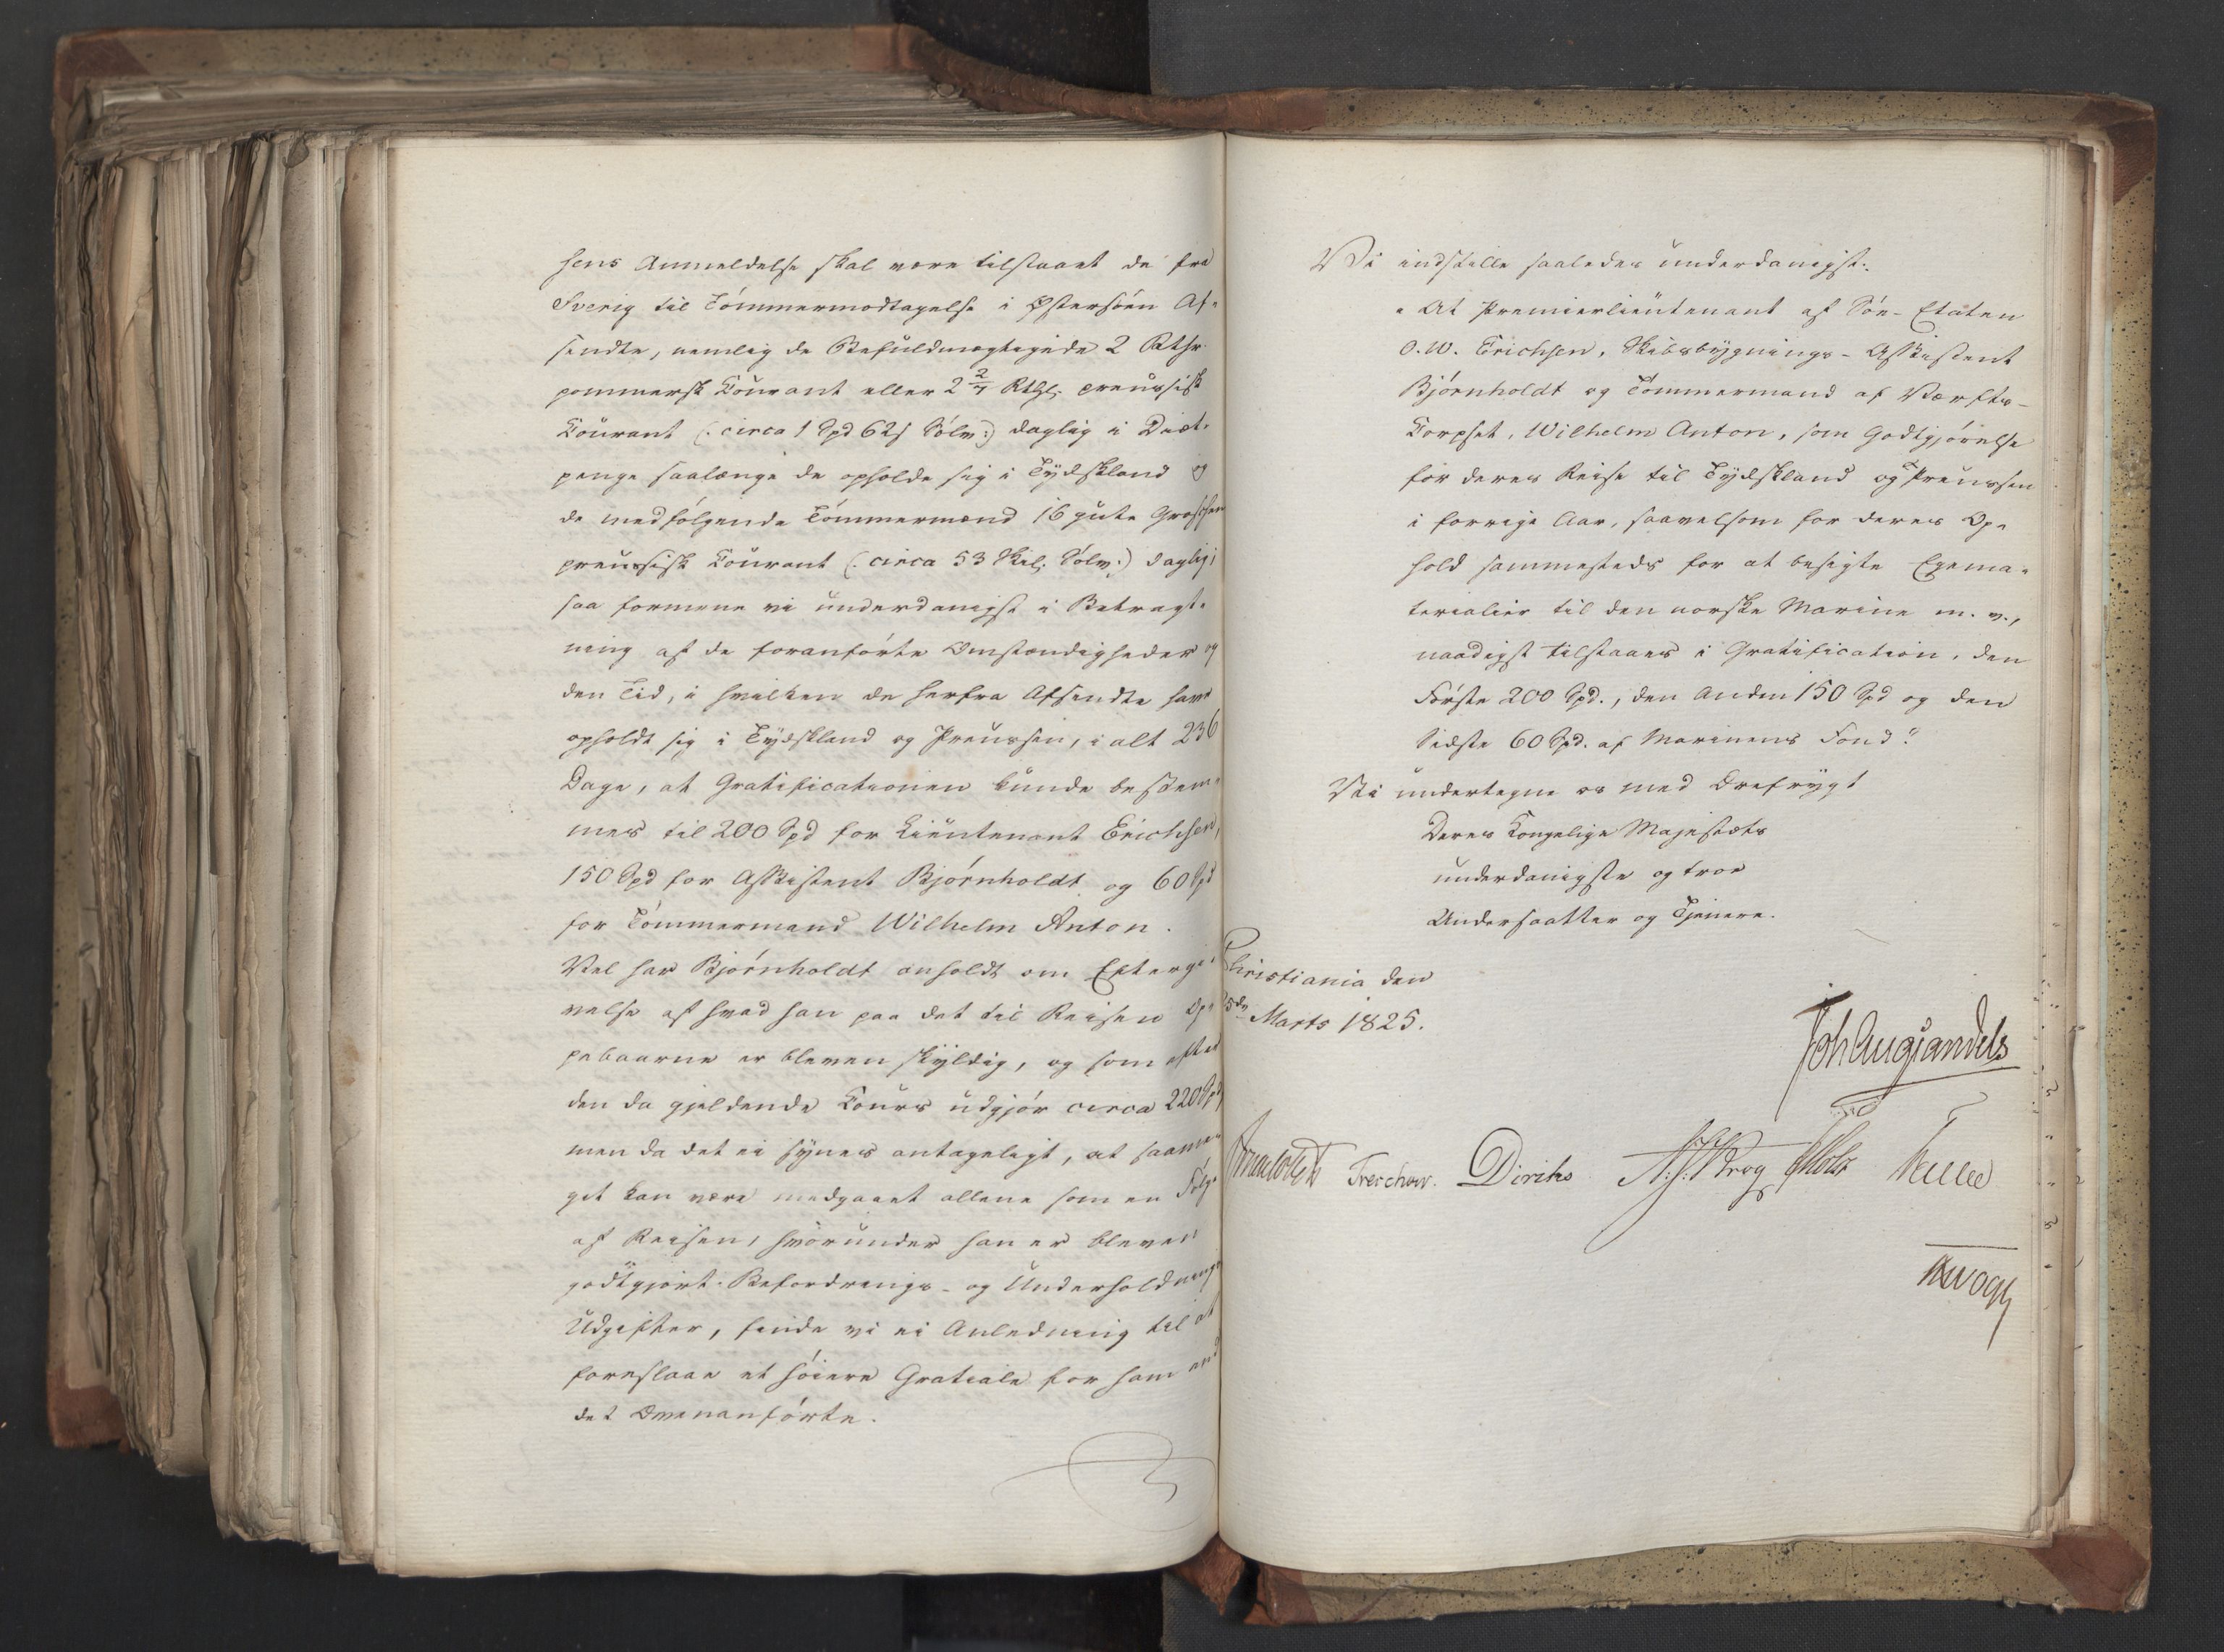 sens Anmeldelse skal være tilstaaet de fra
Sverig til Tømmermodtagelse i Østersøen Af-
sendte, nemlig de Befuldmægtigede 2 Rthr.
pommersk Courant eller 2 2/7 Rthl. preussisk
Courant (: circa 1 Spd 62 s Sølv :) daglig i Diæt-
penge saalænge de opholde sig i Tydskland og
de medfølgende Tømmermænd 16 gute Groschen
preussisk Courant (: circa 53 Skil. Sølv :) daglig;
saa formene vi underdanigst i Betragt-
ning af de foranførte Omstændigheder og
den Tid, i hvilken de herfra Afsendte have
opholdt sig i Tydskland og Preussen, i alt 236
Dage, at Gratificationen kunde bestem-
mes til 200 Spd for Lieutenant Erichsen,
150 Spd for Assistent Bjørnholdt og 60 Spd
for Tømmermand Wilhelm Anton.
Vel har Bjørnholdt anholdt om Eftergi-
velse af hvad han paa det til Reisen Op-
pebaarne er bleven skyldig, og som efter
den da gjeldende Cours udgjør circa 220 Spd,
men da det ei synes antageligt, at saame-
get kan være medgaaet allene som en Følge
af Reisen, hvorunder han er bleven
godtgjort Befordrings- og Underholdnings
Udgifter, finde vi ei Anledning til at
foreslaae et høiere Gratiale for ham end
det Ovenanførte.
Vi indstille saaledes underdanigst:
"At Premierlieutenant af Søe-Etaten
O. W. Erichsen, Skibsbygnings-Assistent
Bjørnholdt og Tømmermand af Værfts-
Corpset, Wilhelm Anton, som Godtgjørelse
for deres Reise til Tydskland og Preussen
i forrige Aar, saavelsom for deres Op-
hold sammesteds for at besigte Egema-
terialier til den norske Marine m. v.,
naadigst tilstaaes i Gratification, den
Første 200 Spd., den Anden 150 Spd og den
Sidste 60 Spd. af Marinens Fond."
Vi undertegne os med Ærefrygt
Deres Kongelige Majestæts
underdanigste og troe
Undersaatter og Tjenere.
Christiania den
Marts 1825.
Joh Aug Sandels
Treschow. Diriks Krog Holst